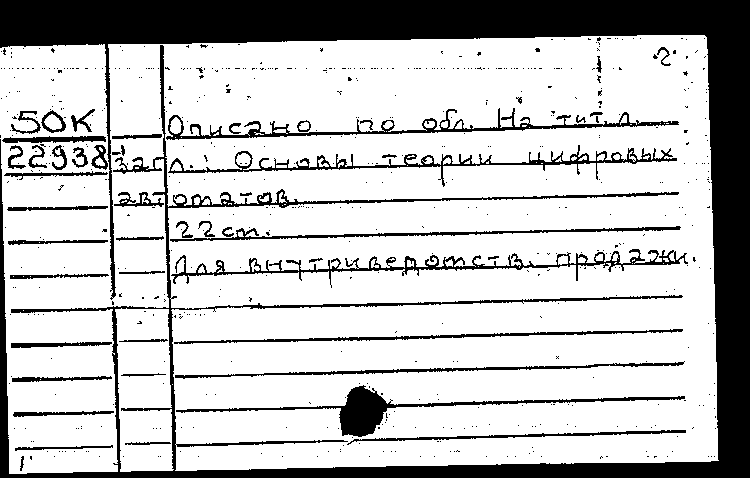 2.
50К Описано по обл. На тит. л.
22938-1 загл.: Основы теории цифровых
автоматов.
22 cm.
Для внутриведомств. продажи.